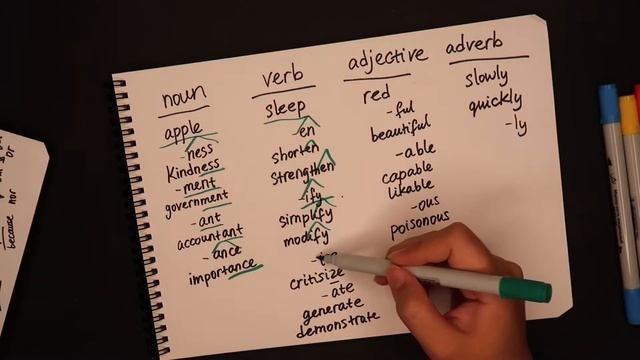 noun
apple
-ness
Kindness
-ment
government
-ant
accountant
-ance
importance
verb
sleep
-en
shorten
strengthen
-ify
simplify
modify
critisize
-ate
generate
demonstrate
adjective
red
-ful
beautiful
-able
capable
likable
-ous
poisonous
adverb
slowly
quickly
-ly
or
nor
because